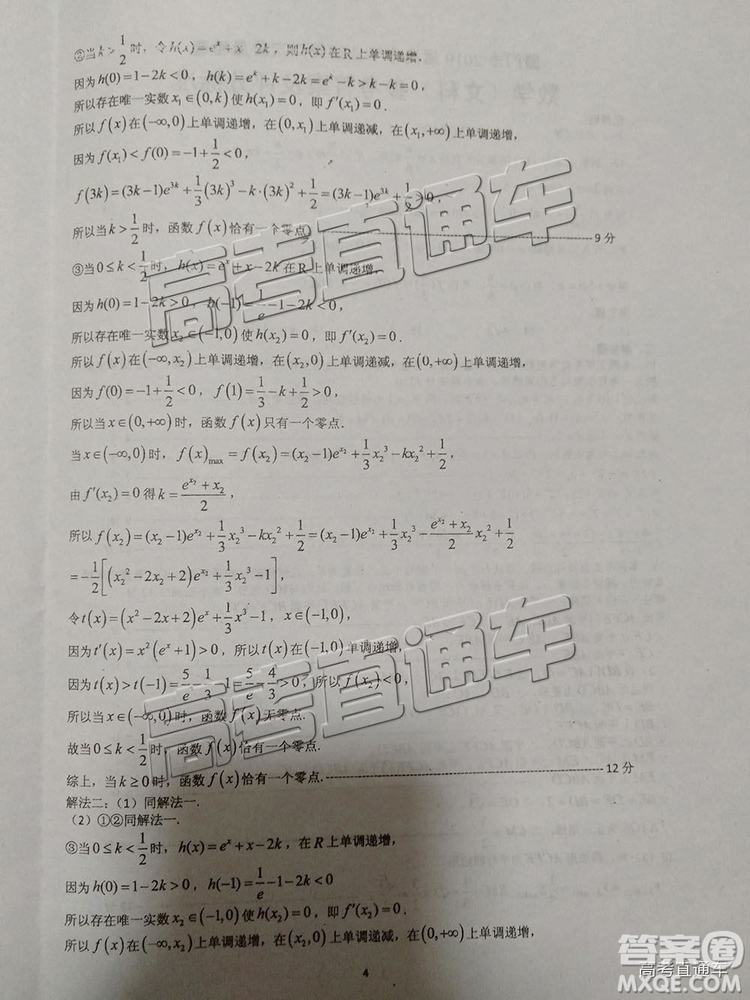 ②当 k > 1/2 时，令 h(x) = e^x + x - 2k，则 h(x) 在 R 上单调递增.
因为 h(0) = 1 - 2k < 0，h(k) = e^k + k - 2k = e^k - k > 0，
所以存在唯一实数 x₁ ∈ (0, k) 使 h(x₁) = 0，即 f'(x₁) = 0.
所以 f(x) 在 (-∞, 0) 上单调递增，在 (0, x₁) 上单调递减，在 (x₁, +∞) 上单调递增.
因为 f(x₁) < f(0) = -1 + 1/2 < 0，
f(3k) = (3k-1)e^{3k} + 1/3(3k)³ - k·(3k)² + 1/2 = (3k-1)e^{3k} + 1/2 > 0，
所以当 k > 1/2 时，函数 f(x) 恰有一个零点.------9分
③当 0 ≤ k < 1/2 时，h(x) = e^x + x - 2k 在 R 上单调递增，
因为 h(0) = 1 - 2k > 0，h(-1) = 1/e - 1 - 2k < 0，
所以存在唯一实数 x₂ ∈ (-1, 0) 使 h(x₂) = 0，即 f'(x₂) = 0.
所以 f(x) 在 (-∞, x₂) 上单调递增，在 (x₂, 0) 上单调递减，在 (0, +∞) 上单调递增，
因为 f(0) = -1 + 1/2 < 0，f(1) = 1/3 - k + 1/2 > 0，
所以当 x ∈ (0, +∞) 时，函数 f(x) 只有一个零点.
当 x ∈ (-∞, 0) 时，f(x)max = f(x₂) = (x₂-1)e^{x₂} + 1/3 x₂³ - kx₂² + 1/2，
由 f'(x₂) = 0 得 k = (e^{x₂} + x₂)/2，
所以 f(x₂) = (x₂-1)e^{x₂} + 1/3 x₂³ - kx₂² + 1/2 = (x₂-1)e^{x₂} + 1/3 x₂³ - (e^{x₂} + x₂)/2 x₂² + 1/2
= -1/2[(x₂² - 2x₂ + 2)e^{x₂} + 1/3 x₂³ - 1]，
令 t(x) = (x² - 2x + 2)e^x + 1/3 x³ - 1，x ∈ (-1, 0)，
因为 t'(x) = x²(e^x + 1) > 0，所以 t(x) 在 (-1, 0) 单调递增，
因为 t(x) > t(-1) = 5/e - 1/3 - 1 = 5/e - 4/3 > 0，所以 f(x₂) < 0，
所以当 x ∈ (-∞, 0) 时，函数 f(x) 无零点.
故当 0 ≤ k < 1/2 时，函数 f(x) 恰有一个零点.
综上，当 k ≥ 0 时，函数 f(x) 恰有一个零点.------12分
解法二：（1）同解法一.
（2）①②同解法一.
③当 0 ≤ k < 1/2 时，h(x) = e^x + x - 2k，在 R 上单调递增，
因为 h(0) = 1 - 2k > 0，h(-1) = 1/e - 1 - 2k < 0
所以存在唯一实数 x₂ ∈ (-1, 0) 使 h(x₂) = 0，即 f'(x₂) = 0.
所以 f(x) 在 (-∞, x₂) 上单调递增，在 (x₂, 0) 上单调递减，在 (0, +∞) 上单调递增，
4
高考直通车
高考直通车
答案圈
高考直通车
MXQE.COM